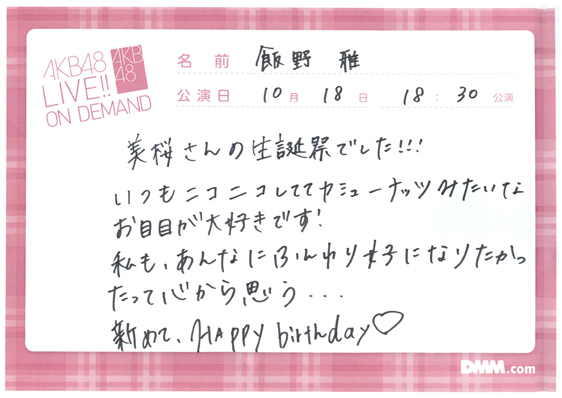 AKB48
LIVE!!
ON DEMAND
AKB
48
名前 飯野 雅
公演日 10月 18日 18:30公演
美桜さんの生誕祭でした!!!
いつもニコニコしててカシューナッツみたいな
お目目が大好きです!
私も、あんなにふんわり女子になりたかっ
たって心から思う...
新めて、HAPPY birthday♡
DMM.com